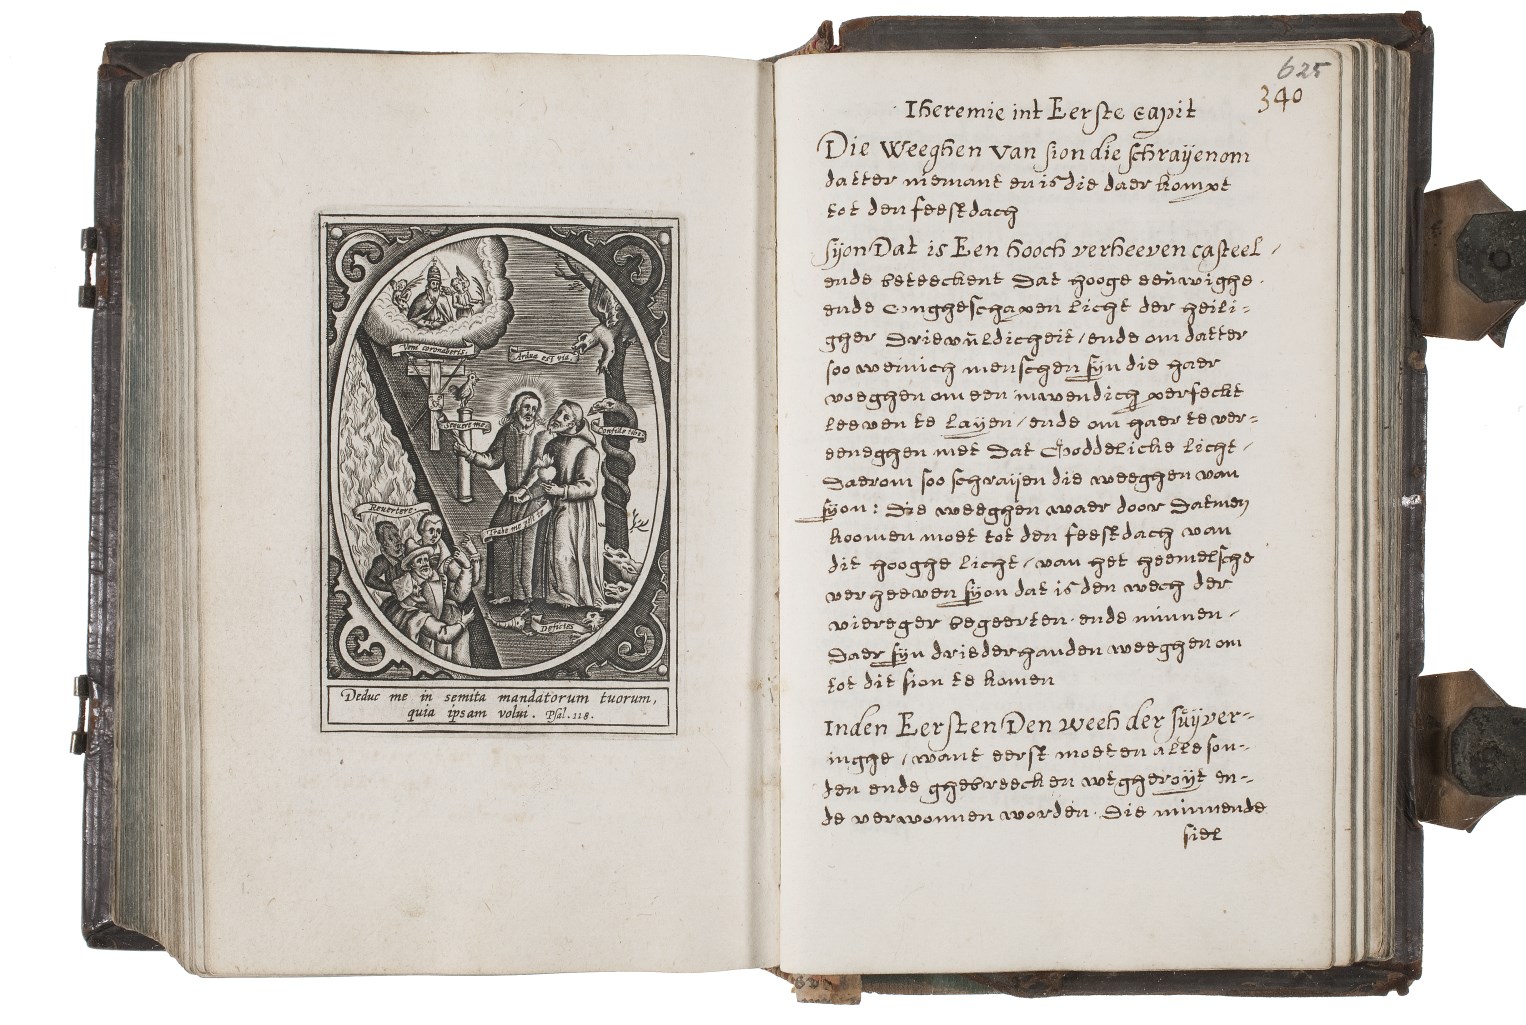 Veni coronaberis.
Ardua est via.
Sequere me.
Confide
Revertere.
Trahe me post te
Deficies
Deduc me in semita mandatorum tuorum,
quia ipsam volui. Psal. 118.
625
340
Iheremie int Eerste capit
Die Weeghen van sion die schraijen om
datter niemant en is die daer kompt
tot den feestdach
sijon Dat is Een hooch verheeven casteel /
ende beteeckent Dat hooge eeuwighe
ende onghescapen licht der heili-
gher Drievuldicheit / ende om datter
soo weinich menschen sijn die haer
voeghen om een inwendich perfeckt
leeven te layen / ende om haer te ver-
eeneghen met Dat Goddelicke licht /
Daerom soo schraijen die weeghen van
sijon: Die weeghen waer door Datmen
koomen moet tot den feestdach van
dit hooghe licht / van het heemelsche
verheeven sijon dat is den wech der
viereger begeerten ende minnen /
Daer sijn drie der handen weeghen om
tot dit sion te komen
Inden Eersten Den weeh der suijver-
inghe / want eerst moeten alle son-
den ende ghebreecken wtgheroijt en-
de verwonnen worden. Die minnende
siel